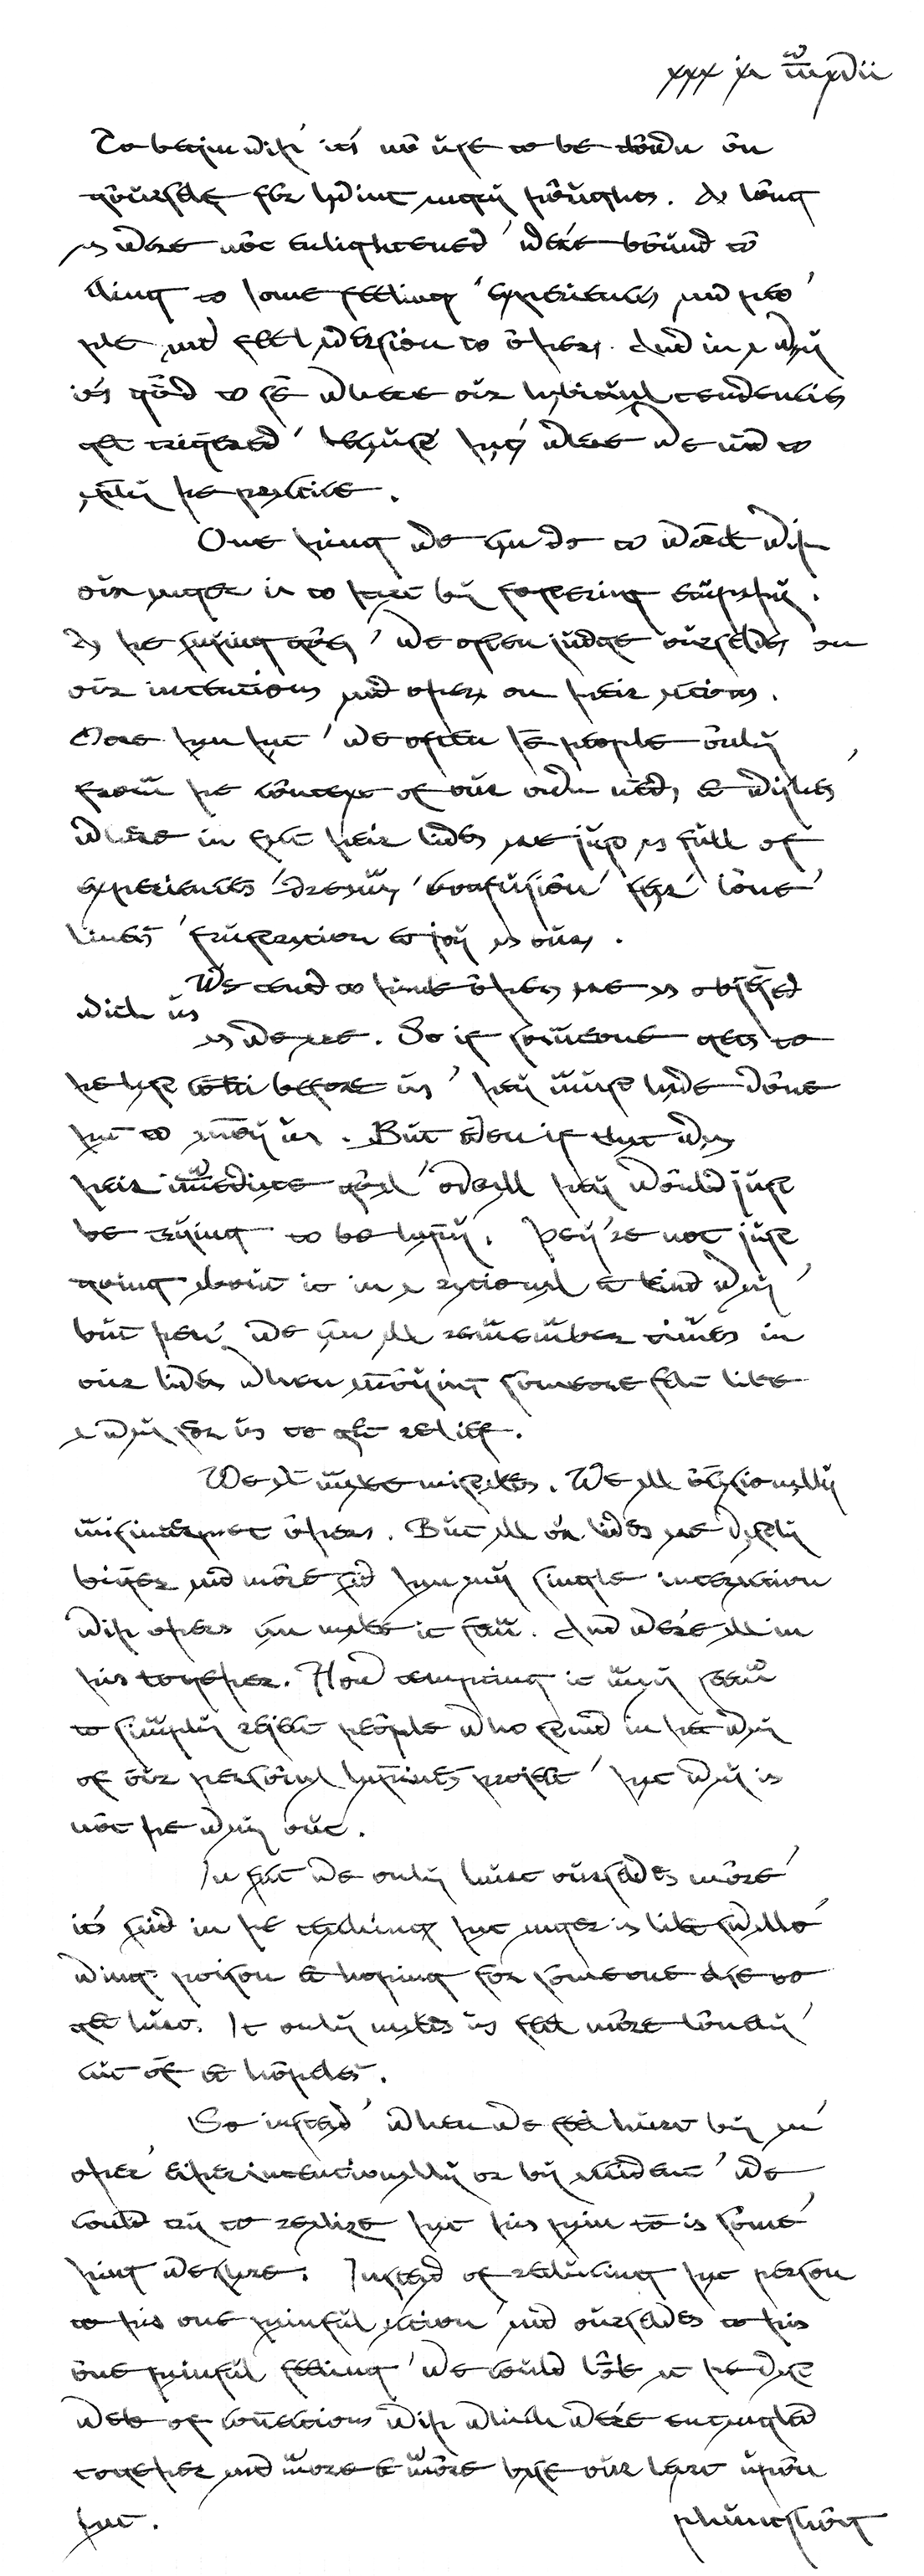 To begin wiþ, it's no use to be down on
yourself for having angry þoughts. As long
as we're not enlightened, we're bound to
cling to some feelings, experiences and peo-
ple and feel aversion to oþers. And in a way
it's good to see where our habitual tendencies
get triggered, because þat's where we need to
apply þe practice.
One þing we can do to work wiþ
our anger is to start by fostering empaþy.
As þe saying goes, we often judge ourselves on
our intentions and oþers on þeir actions.
More þan þat, we often see people only
from þe context of our own needs & wishes,
where in fact þeir lives are just as full of
experiences, dreams, confusion, fear, lone-
liness, frustration & joy as ours.
We tend to þink oþers are as obsessed
wiþ us
as we are. So if someone gets to
þe last cookie before us, þey must have done
þat to annoy us. But even if that was
þeir immediate goal, overall þey would just
be trying to be happy. Þey're not just
going about it in a rational & kind way,
but þen, we can all remember times in
our lives when annoying someone felt like
a way for us to get relief.
We all make mistakes. We all occasionally
misinterpret oþers. But all our lives are vastly
bigger and more sad þan any single interaction
wiþ oþers can make it seem. And we're all in
þis togeþer. How tempting it may seem
to simply reject people who stand in þe way
of our personal happiness project, þat way is
not þe way out.
In fact we only hurt ourselves more,
it's said in þe teachings þat anger is like swallo-
wing poison & hoping for someone else to
get hurt. It only makes us feel more lonely,
cut off & hopeless.
So instead, when we feel hurt by an-
oþer, eiþer intentionally or by accident, we
could try to realize þat þis pain too is some-
þing we share. Instead of reducing þat person
to þis one painful action, and ourselves to þis
one painful feeling, we could look at þe vast
web of connections wiþ which we're entangled
togeþer and more & more base our heart upon
þat.
phuntshog